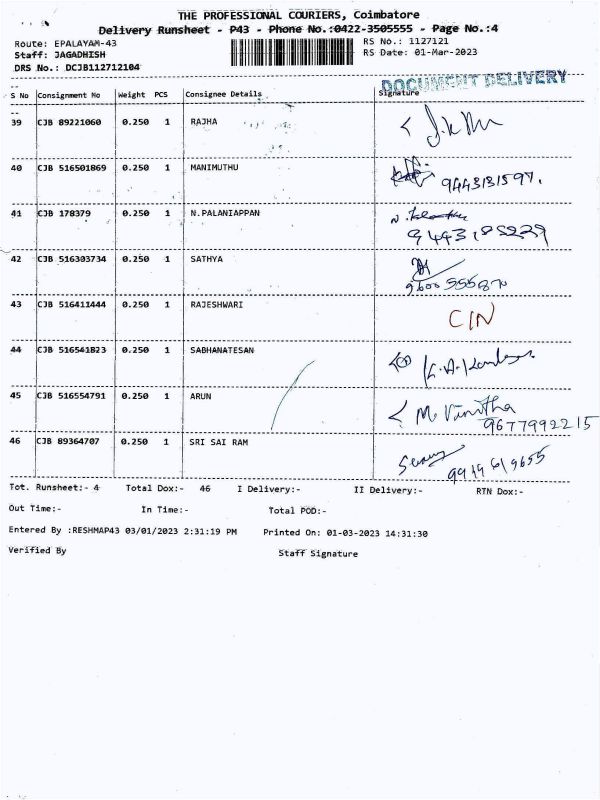 THE PROFESSIONAL COURIERS, Coimbatore
Delivery Runsheet - P43 - Phone No.:0422-3505555 - Page No.:4
Route: EPALAYAM-43
RS No.: 1127121
Staff: JAGADHISH
RS Date: 01-Mar-2023
DRS No.: DCJB112712104
DOCUMENT DELIVERY
S No Consignment No Weight PCS Consignee Details Signature
39 CJB 89221060 0.250 1 RAJHA
40 CJB 516501869 0.250 1 MANIMUTHU
9443131597.
41 CJB 178379 0.250 1 N.PALANIAPPAN
42 CJB 516303734 0.250 1 SATHYA
43 CJB 516411444 0.250 1 RAJESHWARI
CIN
44 CJB 516541823 0.250 1 SABHANATESAN
45 CJB 516554791 0.250 1 ARUN
M. Vinitha
9677992215
46 CJB 89364707 0.250 1 SRI SAI RAM
Tot. Runsheet:- 4 Total Dox:- 46 I Delivery:- II Delivery:- RTN Dox:-
Out Time:- In Time:- Total POD:-
Entered By :RESHMAP43 03/01/2023 2:31:19 PM Printed On: 01-03-2023 14:31:30
Verified By Staff Signature